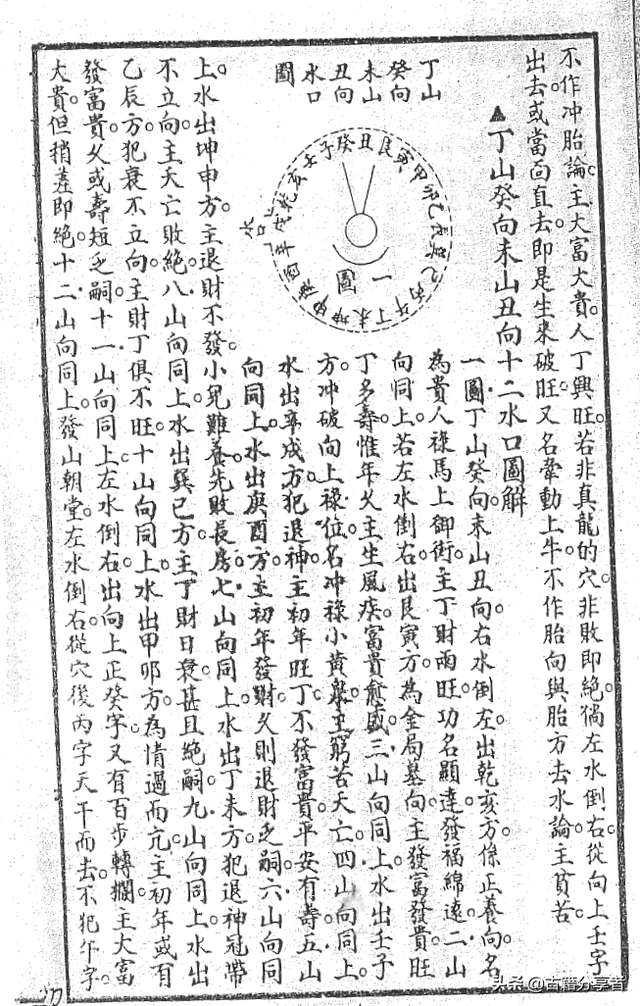 不作冲胎論。主大富大貴。人丁興旺。若非真龍的穴。非敗即絕。倘左水倒右。從向上壬字
出去。或當面直去。即是生來破旺。又名牽動土牛。不作胎向與胎方去水論。主貧苦。
▲丁山癸向未山丑向十二水口圖解
丁山
癸向
未山
丑向
水口
圖
子癸丑艮寅甲卯乙辰巽巳丙午丁未坤申庚酉辛戌乾亥壬
水口
一圖
一圖丁山癸向。未山丑向。右水倒左。出乾亥方。係正養向。名
為貴人祿馬上御街。主丁財兩旺。功名顯達。發福綿遠。二山
向同上。若左水倒右。出艮寅方。為金局墓向。主發富發貴。旺
丁多壽。惟年久主生風疾。富貴愈盛。三山向同上。水出壬子
方。冲破向上祿位。名冲祿小黃泉。主窮苦夭亡。四山向同上。
水出辛戌方。犯退神。主初年旺丁。不發富貴。平安有壽。五山
向同上。水出庚酉方。主初年發財。久則退財乏嗣。六山向同
上。水出坤申方。主退財不發。小兒難養。先敗長房。七山向同上。水出丁未方。犯退神冠帶
不立向。主夭亡敗絕。八山向同上。水出巽巳方。主丁財日衰。甚且絕嗣。九山向同上。水出
乙辰方。犯衰不立向。主財丁俱不旺。十山向同上。水出甲卯方。為情過而亢。主初年或有
發富貴。久或壽短乏嗣。十一山向同上。左水倒右。出向上正癸字。又有百步轉攔。主大富
大貴。但稍差即絕。十二山向同上。發山朝堂。左水倒右。從穴後丙字天干而去。不犯午字。
头条@古籍分享者